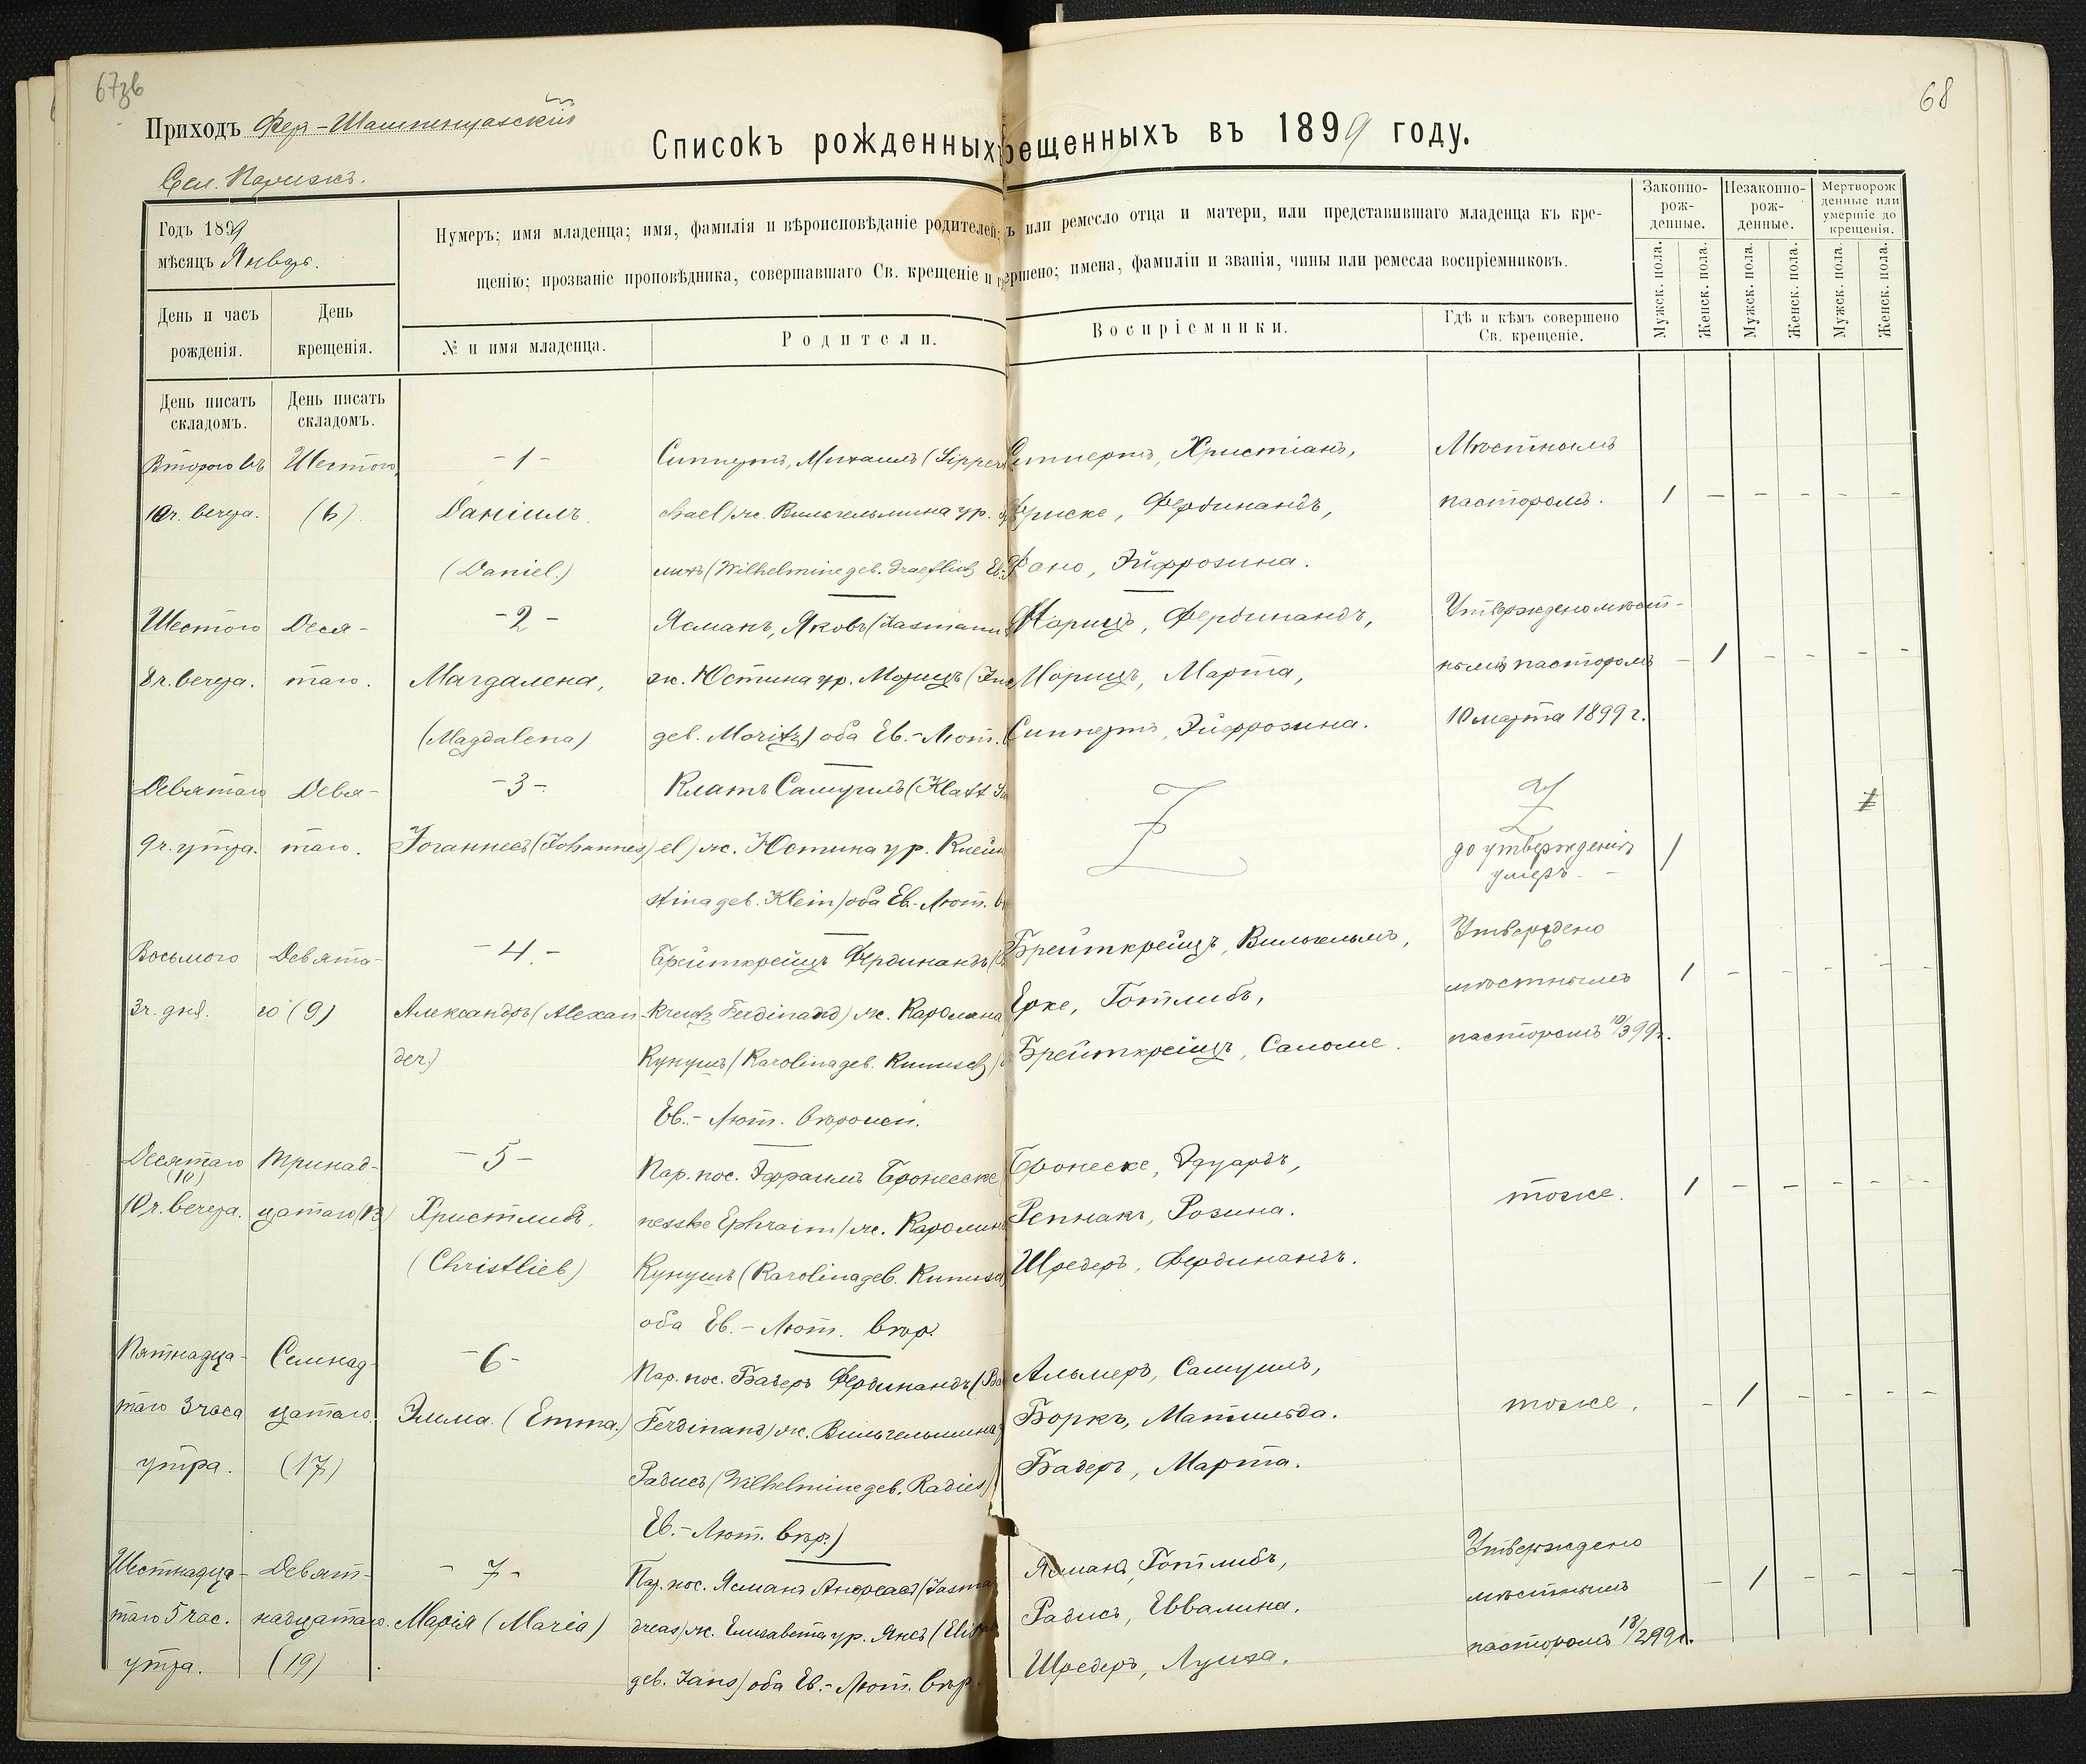 67зв
68
Приходъ Фер-Шампенуазскій
Сел. Парижъ.
Списокъ рожденныхъ
рещенныхъ въ 1899 году.
Годъ 1899
мѣсяцъ Январь.
День и часъ рожденія.
День крещенія.
Нумеръ; имя младенца; имя, фамилія и вѣроисповѣданіе родителей;
ъ или ремесло отца и матери, или представившаго младенца къ кре-
щенію; прозваніе проповѣдника, совершавшаго Св. крещеніе и г
ершено; имена, фамиліи и званія, чины или ремесла воспріемниковъ.
№ и имя младенца.
Родители.
Воспріемники.
Гдѣ и кѣмъ совершено
Св. крещеніе.
Законно-
рож-
денные.
Незаконно-
рож-
денные.
Мертворож
денные или
умершіе до
крещенія.
Мужск. пола.
Женск. пола.
Мужск. пола.
Женск. пола.
Мужск. пола.
Женск. пола.
День писать
складомъ.
День писать
складомъ.
Второго въ
10ч. вечера.
Шестого,
(6).
-1-
Даніилъ.
(Daniel.)
Саппертъ, Михаилъ (Sipper
chael) ж. Вильгельмина ур.
лихъ (Wilhelmine geb. Fraehlich Ев.
Сиппертъ, Христіанъ,
Фриске, Фердинандъ,
Яно, Эйфрозина.
Мѣстнымъ
пасторомъ.
1 - - - - -
Шестого
8ч. вечера.
Деся-
таго.
-2-
Магдалена,
(Magdalena)
Ясманъ, Яковъ (Jasmann
ж. Юстина ур. Морицъ (Ju
geb. Moritz) оба Ев.-Лют.
Морицъ, Фердинандъ,
Морицъ, Марта,
Сиппертъ, Эйфрозина.
Утверждено мѣст-
нымъ пасторомъ
10 марта 1899 г.
- 1 - - - -
Девятаго
9ч. утра.
Девя-
таго.
-3-
Іоганнесъ (Johannes)
Клатъ Самуилъ (Klatt
el) ж. Юстина ур. Клейн
stina geb. Klein) оба Ев.-Лют.
до утвержденія
умеръ.
1
Восьмого
3ч. дня.
Девята-
го (9)
-4-
Александръ (Alexan-
der)
Брейткрейцъ Фердинандъ
kreutz Ferdinand) ж. Каролина
Кунушъ (Karolina geb. Kunusch)
Ев.-Лют. вѣроисп.
Брейткрейцъ, Вильгельмъ,
Ерке, Готлибъ,
Брейткрейцъ, Саломе.
Утверждено
мѣстнымъ
пасторомъ 10/3 99г.
1 - - - - -
Десятаго
(10)
10ч. вечера.
Тринад-
цатаго (13)
-5-
Христлибъ.
(Christlieb)
Пар. пос. Эфраимъ Бронесске
nesske Ephraim) ж. Каролин
Кунушъ (Karolina geb. Kunusch
оба Ев.-Лют. вѣр.
Бронеске, Эдуардъ,
Репнакъ, Розина.
Шредеръ, Фердинандъ.
тоже.
1 - - - - -
Пятнадца-
таго 3 часа
утра.
Семнад-
цатаго.
(17)
-6-
Эмма. (Emma.)
Пар. пос. Бадеръ Фердинандъ (Ba
Ferdinand) ж. Вильгельмина
Радисъ (Wilhelmine geb. Radies)
Ев.-Лют. вѣр.)
Альмеръ, Самуилъ,
Боркъ, Матильда.
Бадеръ, Марта.
тоже.
- 1 - - - -
Шестнадца-
таго 5 час.
утра.
Девят-
надцатаго.
(19)
-7-
Марія (Maria)
Пар. пос. Ясманъ Андреасъ (Jasma
dreas) ж. Елизабета ур. Янсъ (Elisa
geb. Jans) оба Ев.-Лют. вѣр.
Ясманъ, Готлибъ,
Радисъ, Еввалина.
Шредеръ, Луиза.
Утверждено
мѣстнымъ
пасторомъ 18/2 99г.
- 1 - - - -